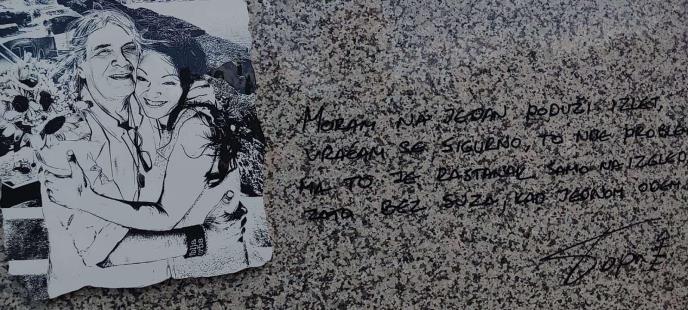 MORAM NA JEDAN PODUŽI IZLET,
VRAĆAM SE SIGURNO, TO NIJE PROBLEM
MA TO JE RASTANAK SAMO NAIZGLED
ZATO BEZ SUZA, KAD JEDNOM ODEM